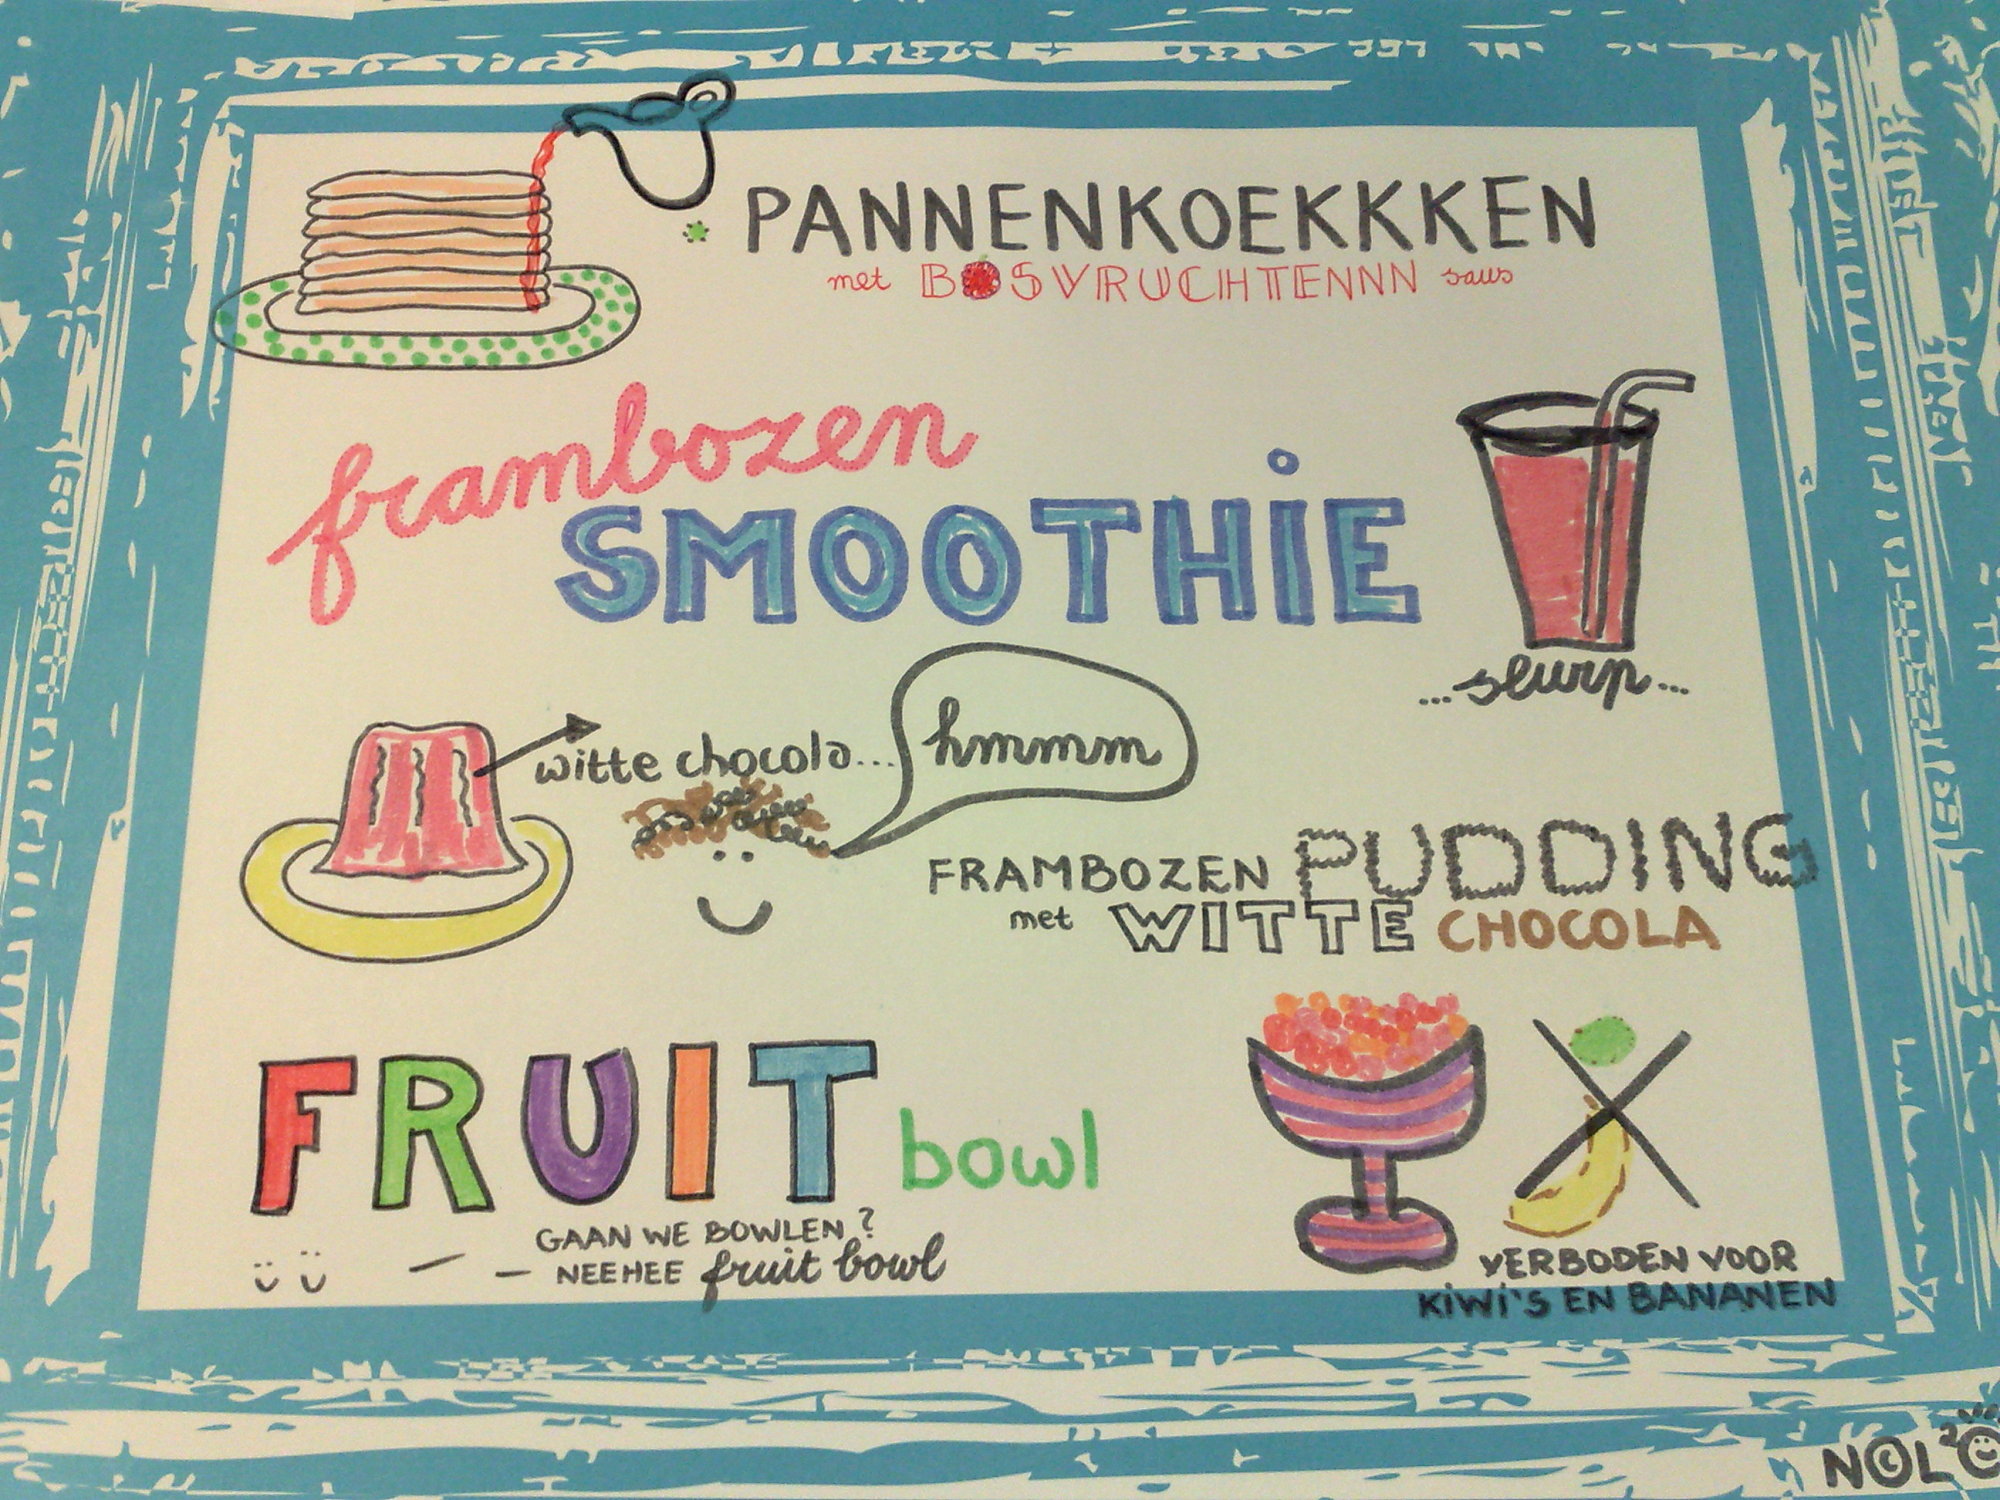 PANNENKOEKKKEN
met BOSVRUCHTENNN saus
frambozen
SMOOTHiE
...slurp...
witte chocola...
hmmm
FRAMBOZEN PUDDING
met WITTE CHOCOLA
FRUIT bowl
GAAN WE BOWLEN?
NEEHEE fruit bowl
VERBODEN VOOR
KiWi'S EN BANANEN